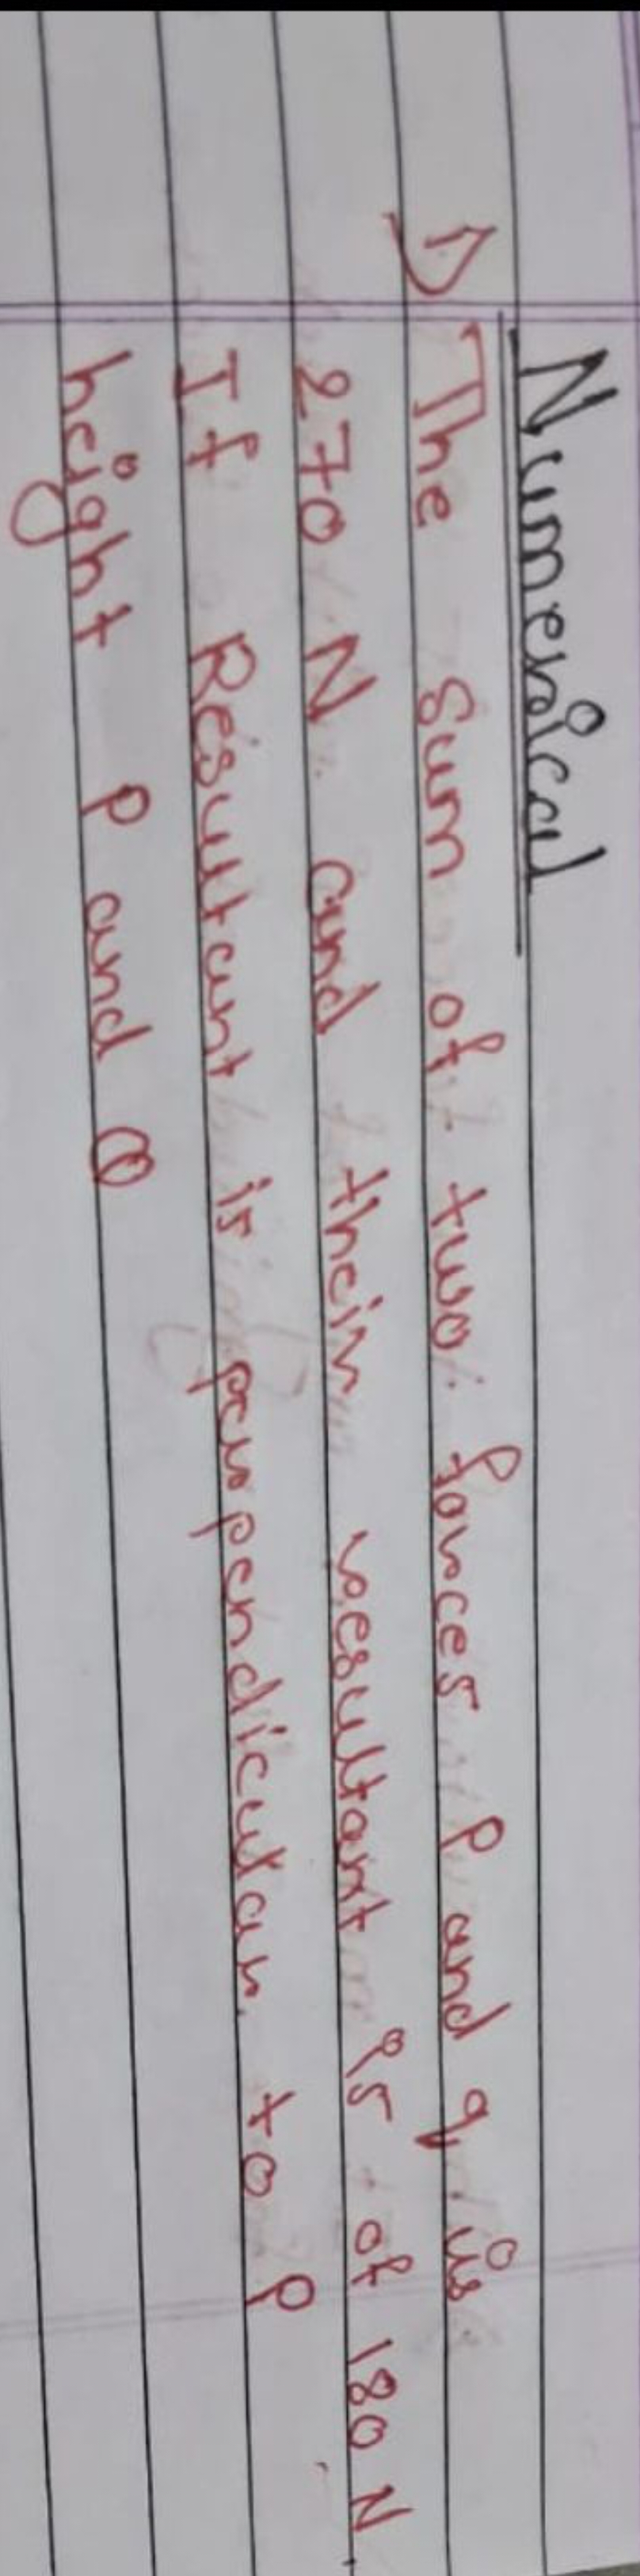 Numerical
1) The Sum of two forces P and q is
270 N and their resultant is of 180 N
If Resultant is perpendicular to P
height P and Q